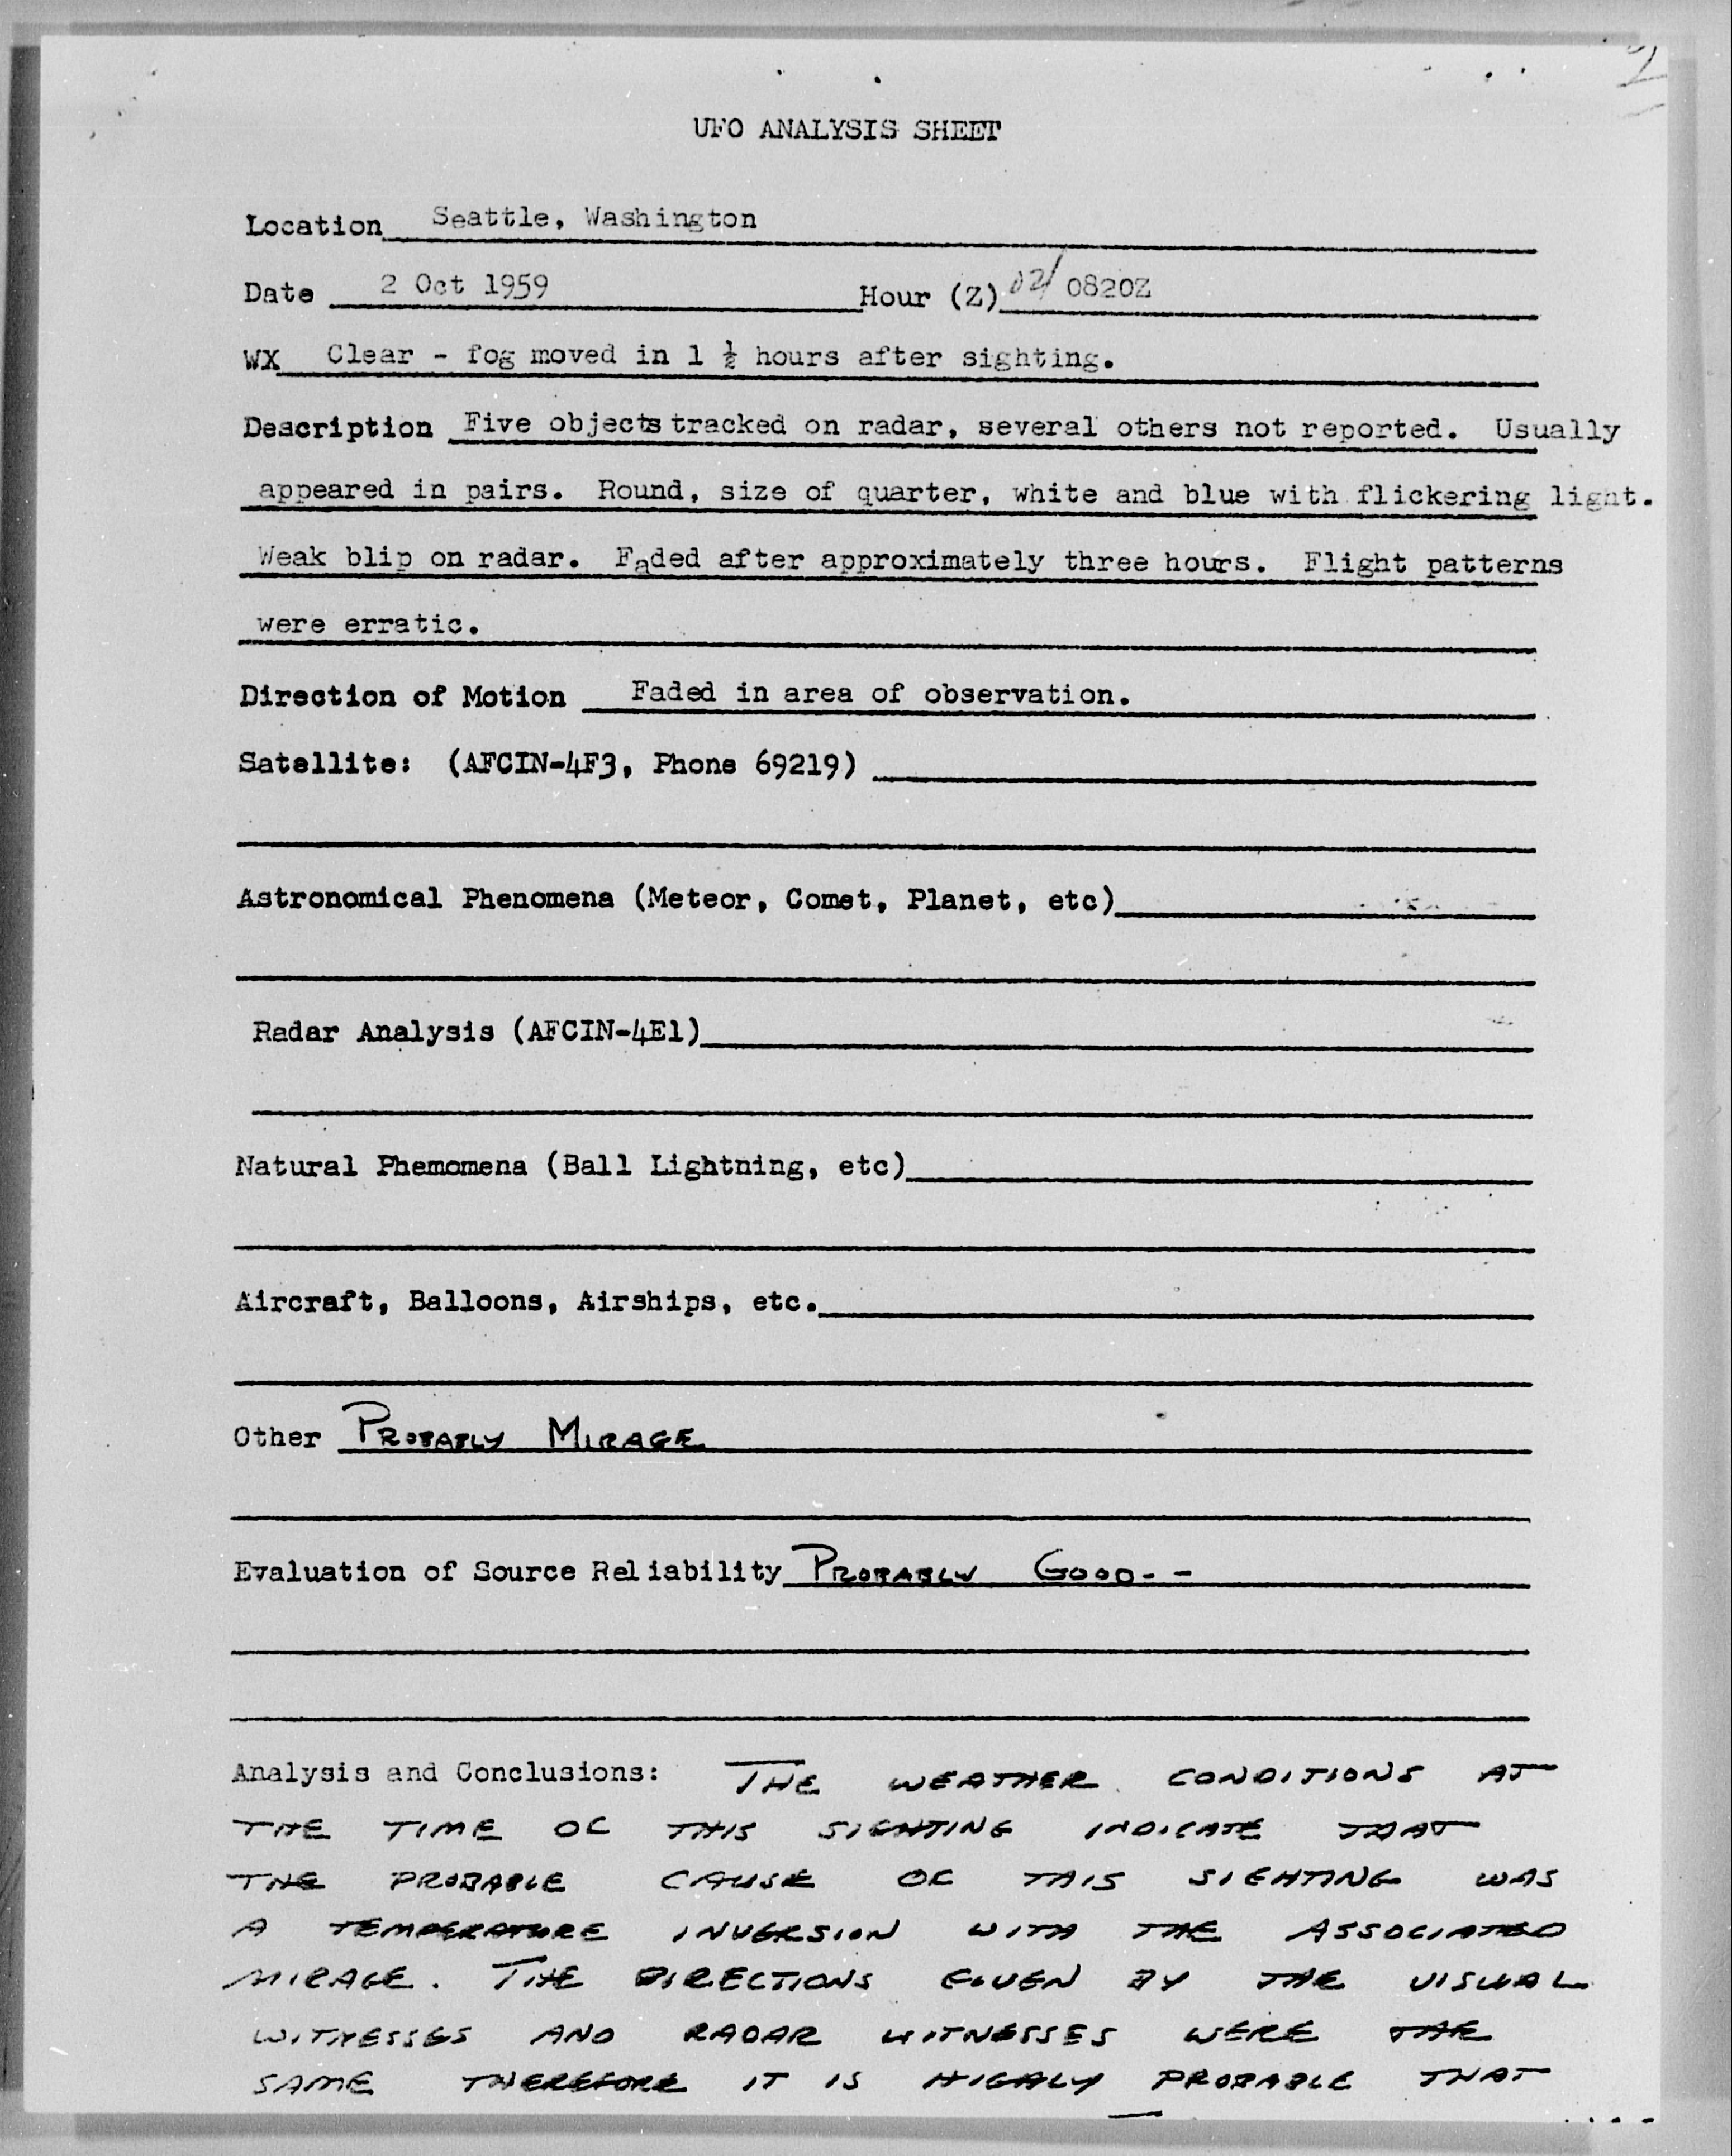 UFO ANALYSIS SHEET
Location Seattle, Washington
Date 2 Oct 1959 Hour (Z) 02/ 0820Z
WX Clear - fog moved in 1 ½ hours after sighting.
Description Five objects tracked on radar, several others not reported. Usually
appeared in pairs. Round, size of quarter, white and blue with flickering light.
Weak blip on radar. Faded after approximately three hours. Flight patterns
were erratic.
Direction of Motion Faded in area of observation.
Satellite: (AFCIN-4F3, Phone 69219)
Astronomical Phenomena (Meteor, Comet, Planet, etc)
Radar Analysis (AFCIN-4E1)
Natural Phemomena (Ball Lightning, etc)
Aircraft, Balloons, Airships, etc.
Other PROBABLY MIRAGE
Evaluation of Source Reliability PROBABLY GOOD--
Analysis and Conclusions: THE WEATHER CONDITIONS AT
THE TIME OF THIS SIGHTING INDICATE THAT
THE PROBABLE CAUSE OF THIS SIGHTING WAS
A TEMPERATURE INVERSION WITH THE ASSOCIATED
MIRAGE. THE DIRECTIONS GIVEN BY THE VISUAL
WITNESSES AND RADAR WITNESSES WERE THE
SAME THEREFORE IT IS HIGHLY PROBABLE THAT